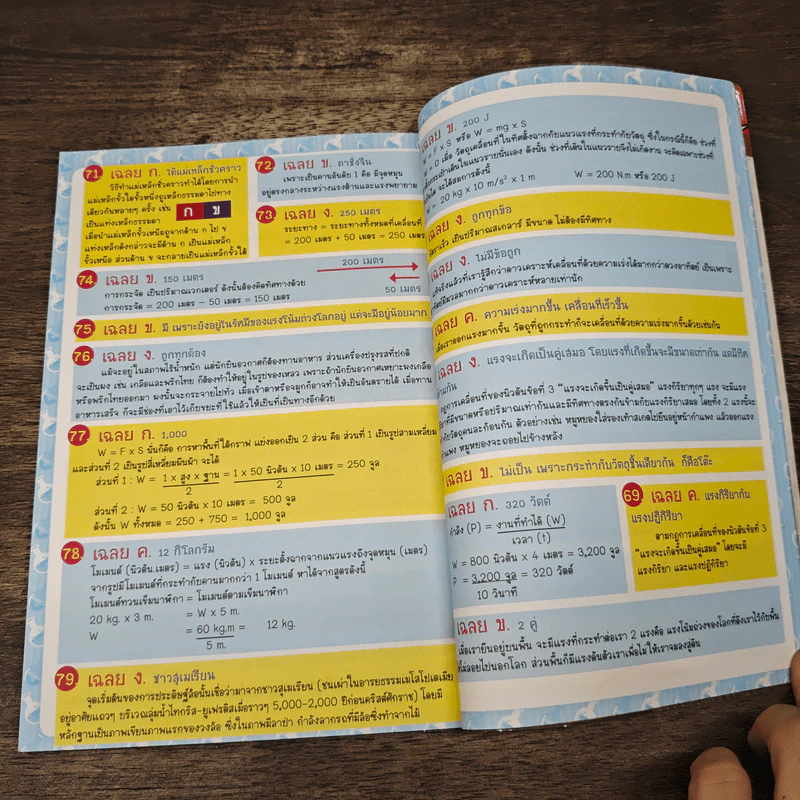 71 เฉลย ก. ได้แม่เหล็กชั่วคราว
วิธีทำแม่เหล็กชั่วคราวทำได้โดยการนำ
แม่เหล็กขั้วใดขั้วหนึ่งถูเหล็กธรรมดาไปทาง
เดียวกันหลายๆ ครั้ง เช่น
ก ข
เป็นแท่งเหล็กธรรมดา
เมื่อนำแม่เหล็กขั้วเหนือถูจากด้าน ก ไป ข
แท่งเหล็กดังกล่าวจะมีด้าน ก เป็นแม่เหล็ก
ขั้วเหนือ ส่วนด้าน ข จะกลายเป็นแม่เหล็กขั้วใต้
72 เฉลย ข. ตาชั่งจีน
เพราะเป็นคานอันดับ 1 คือ มีจุดหมุน
อยู่ตรงกลางระหว่างแรงต้านและแรงพยายาม
73. เฉลย ง. 250 เมตร
ระยะทาง = ระยะทางทั้งหมดที่เคลื่อนที่
= 200 เมตร + 50 เมตร = 250 เมตร
74. เฉลย ข. 150 เมตร
การกระจัด เป็นปริมาณเวกเตอร์ ดังนั้นต้องคิดทิศทางด้วย
การกระจัด = 200 เมตร − 50 เมตร = 150 เมตร
200 เมตร
50 เมตร
75 เฉลย ข. มี เพราะยังอยู่ในรัศมีของแรงโน้มถ่วงโลกอยู่ แต่จะมีอยู่น้อยมาก
76. เฉลย ง. ถูกทุกต้อง
แม้จะอยู่ในสภาพไร้น้ำหนัก แต่นักบินอวกาศก็ต้องทานอาหาร ส่วนเครื่องปรุงรสที่ปกติ
จะเป็นผง เช่น เกลือและพริกไทย ก็ต้องทำให้อยู่ในรูปของเหลว เพราะถ้านักบินอวกาศเหยาะผงเกลือ
หรือพริกไทยออกมา ผงนั้นจะกระจายไปทั่ว เมื่อเข้าตาหรือจมูกก็อาจทำให้เป็นอันตรายได้ เมื่อทาน
อาหารเสร็จ ก็จะมีช่องที่เอาไว้เก็บขยะที่ใช้แล้วให้เป็นที่เป็นทางอีกด้วย
77. เฉลย ก. 1,000
W = F x S นั่นก็คือ การหาพื้นที่ใต้กราฟ แบ่งออกเป็น 2 ส่วน คือ ส่วนที่ 1 เป็นรูปสามเหลี่ยม
และส่วนที่ 2 เป็นรูปสี่เหลี่ยมผืนผ้า จะได้
ส่วนที่ 1 : W = 1 x สูง x ฐาน = 1 x 50 นิวตัน x 10 เมตร = 250 จูล
2 2
ส่วนที่ 2 : W = 50 นิวตัน x 10 เมตร = 500 จูล
ดังนั้น W ทั้งหมด = 250 + 750 = 1,000 จูล
78. เฉลย ค. 12 กิโลกรัม
โมเมนต์ (นิวตัน.เมตร) = แรง (นิวตัน) x ระยะตั้งฉากจากแนวแรงถึงจุดหมุน (เมตร)
จากรูปมีโมเมนต์ที่กระทำกับคานมากกว่า 1 โมเมนต์ หาได้จากสูตรดังนี้
โมเมนต์ทวนเข็มนาฬิกา = โมเมนต์ตามเข็มนาฬิกา
20 kg. x 3 m. = W x 5 m.
W = 60 kg.m = 12 kg.
5 m.
79. เฉลย ง. ชาวสุเมเรียน
จุดเริ่มต้นของการประดิษฐ์ล้อนั้นเชื่อว่ามาจากชาวสุเมเรียน (ชนเผ่าในอารยธรรมเมโสโปเตเมีย
อยู่อาศัยแถวๆ บริเวณลุ่มน้ำไทกริส-ยูเฟรติสเมื่อราวๆ 5,000-2,000 ปีก่อนคริสต์ศักราช) โดยมี
หลักฐานเป็นภาพเขียนภาพแรกของวงล้อ ซึ่งในภาพมีลาป่า กำลังลากรถที่มีล้อซึ่งทำจากไม้
เฉลย ข. 200 J
W = F x S หรือ W = mg x S
W = 0 เมื่อ วัตถุเคลื่อนที่ในทิศตั้งฉากกับแนวแรงที่กระทำกับวัตถุ ซึ่งในกรณีนี้ก็คือ ช่วงที่
กระเป๋าเดินในแนวราบนั่นเอง ดังนั้น ช่วงที่เดินในแนวราบจึงไม่เกิดงาน จะคิดเฉพาะช่วงที่
ได้ จะได้สมการดังนี้
20 kg x 10 m/s² x 1 m W = 200 N.m หรือ 200 J
เฉลย ง. ถูกทุกข้อ
อัตราเร็ว เป็นปริมาณสเกลาร์ มีขนาด ไม่ต้องมีทิศทาง
เฉลย ง. ไม่มีข้อถูก
จริงแล้วที่เรารู้สึกว่าดาวเคราะห์เคลื่อนที่ด้วยความเร่งได้มากกว่าดวงอาทิตย์ เป็นเพราะ
มีมวลมากกว่าดาวเคราะห์หลายเท่านัก
เฉลย ค. ความเร่งมากขึ้น เคลื่อนที่เร็วขึ้น
เมื่อเราออกแรงมากขึ้น วัตถุที่ถูกกระทำก็จะเคลื่อนที่ด้วยความเร่งมากขึ้นด้วยเช่นกัน
เฉลย ง. แรงจะเกิดเป็นคู่เสมอ โดยแรงที่เกิดขึ้นจะมีขนาดเท่ากัน แต่มีทิศ
ข้ามกัน
กฎการเคลื่อนที่ของนิวตันข้อที่ 3 "แรงจะเกิดขึ้นเป็นคู่เสมอ" แรงกิริยาทุกๆ แรง จะมีแรง
ที่มีขนาดหรือปริมาณเท่ากันและมีทิศทางตรงกันข้ามกับแรงกิริยาเสมอ โดยทั้ง 2 แรงนี้จะ
กับวัตถุคนละก้อนกัน ตัวอย่างเช่น หมูหยองใส่รองเท้าสเกตไปยืนอยู่หน้ากำแพง แล้วออกแรง
กำแพง หมูหยองจะถอยไปข้างหลัง
เฉลย ข. ไม่เป็น เพราะกระทำกับวัตถุชิ้นเดียวกัน ก็คือโต๊ะ
เฉลย ก. 320 วัตต์
กำลัง (P) = งานที่ทำได้ (W)
เวลา (t)
W = 800 นิวตัน x 4 เมตร = 3,200 จูล
P = 3,200 จูล = 320 วัตต์
10 วินาที
69. เฉลย ค. แรงกิริยากับ
แรงปฏิกิริยา
ตามกฎการเคลื่อนที่ของนิวตันข้อที่ 3
"แรงจะเกิดขึ้นเป็นคู่เสมอ" โดยจะมี
แรงกิริยา และแรงปฏิกิริยา
เฉลย ข. 2 คู่
เมื่อเรายืนอยู่บนพื้น จะมีแรงที่กระทำต่อเรา 2 แรงคือ แรงโน้มถ่วงของโลกที่ดึงเราไว้กับพื้น
ไม่ลอยไปนอกโลก ส่วนพื้นก็มีแรงดันตัวเราเพื่อไม่ให้เราจมลงสู่ดิน